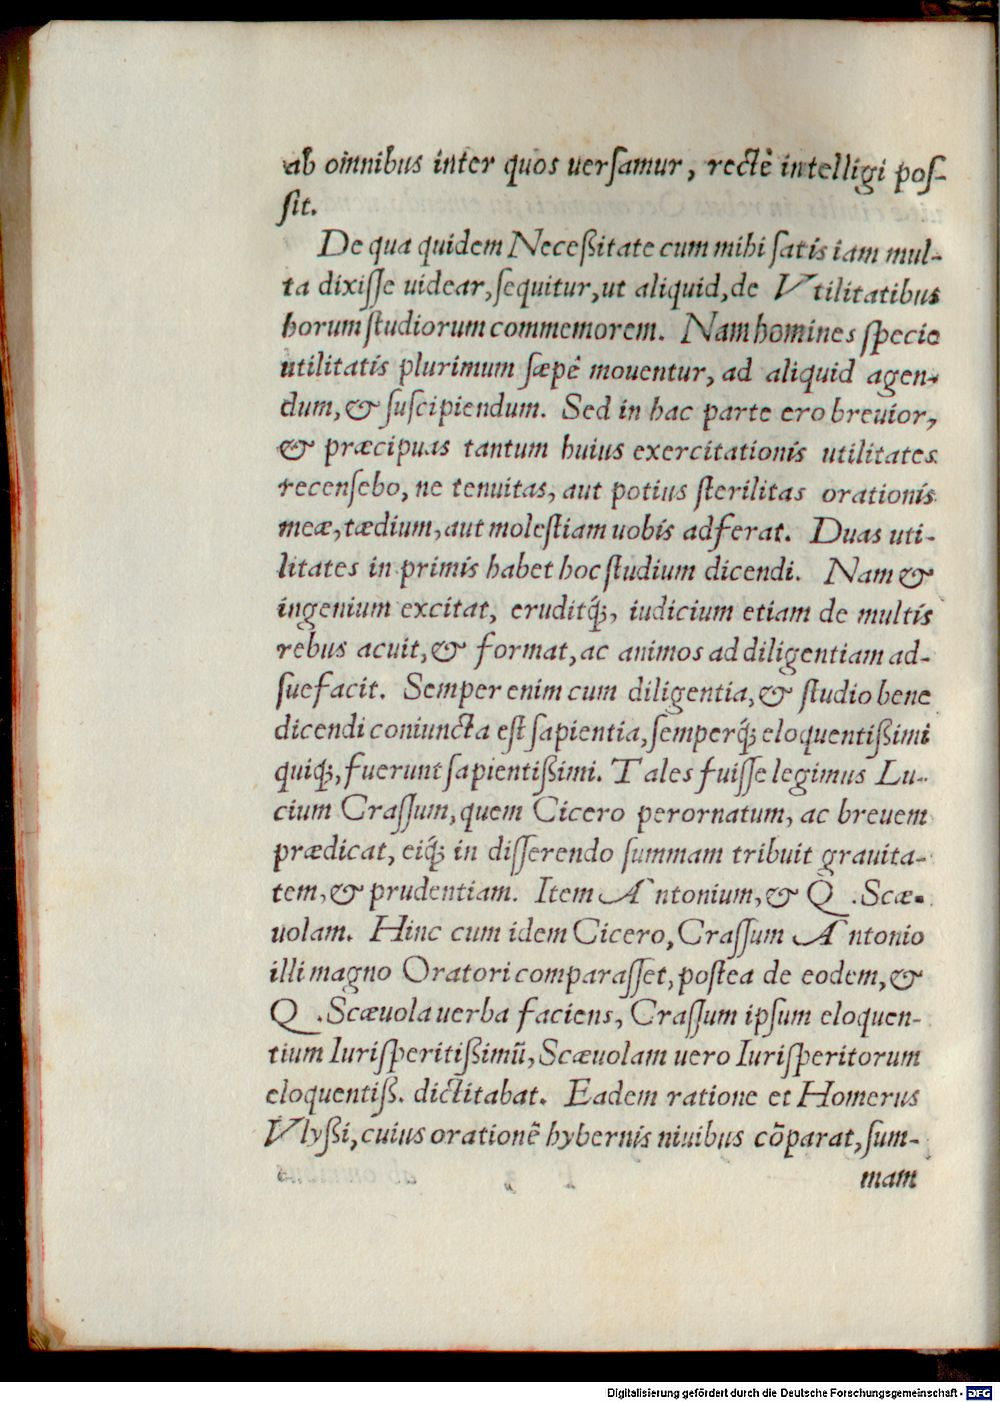 ab omnibus inter quos uersamur, rectè intelligi pos-
sit.
De qua quidem Neceßitate cum mihi satis iam mul-
ta dixisse uidear, sequitur, ut aliquid, de Vtilitatibus
horum studiorum commemorem. Nam homines specie
utilitatis plurimum sæpè mouentur, ad aliquid agen-
dum, & suscipiendum. Sed in hac parte ero breuior,
& præcipuas tantum huius exercitationis utilitates
recensebo, ne tenuitas, aut potius sterilitas orationis
meæ, tædium, aut molestiam uobis adferat. Duas uti-
litates in primis habet hoc studium dicendi. Nam &
ingenium excitat, eruditq́;, iudicium etiam de multis
rebus acuit, & format, ac animos ad diligentiam ad-
suefacit. Semper enim cum diligentia, & studio bene
dicendi coniuncta est sapientia, semperq́; eloquentißimi
quiq;, fuerunt sapientißimi. Tales fuisse legimus Lu-
cium Crassum, quem Cicero perornatum, ac breuem
prædicat, eiq́; in disserendo summam tribuit grauita-
tem, & prudentiam. Item Antonium, & Q. Scæ-
uolam. Hinc cum idem Cicero, Crassum Antonio
illi magno Oratori comparasset, postea de eodem, &
Q. Scæuola uerba faciens, Crassum ipsum eloquen-
tium Iurisperitißimũ, Scæuolam uero Iurisperitorum
eloquentiß. dictitabat. Eadem ratione et Homerus
Vlyßi, cuius orationẽ hybernis niuibus cõparat, sum-
mam
Digitalisierung gefördert durch die Deutsche Forschungsgemeinschaft - DFG